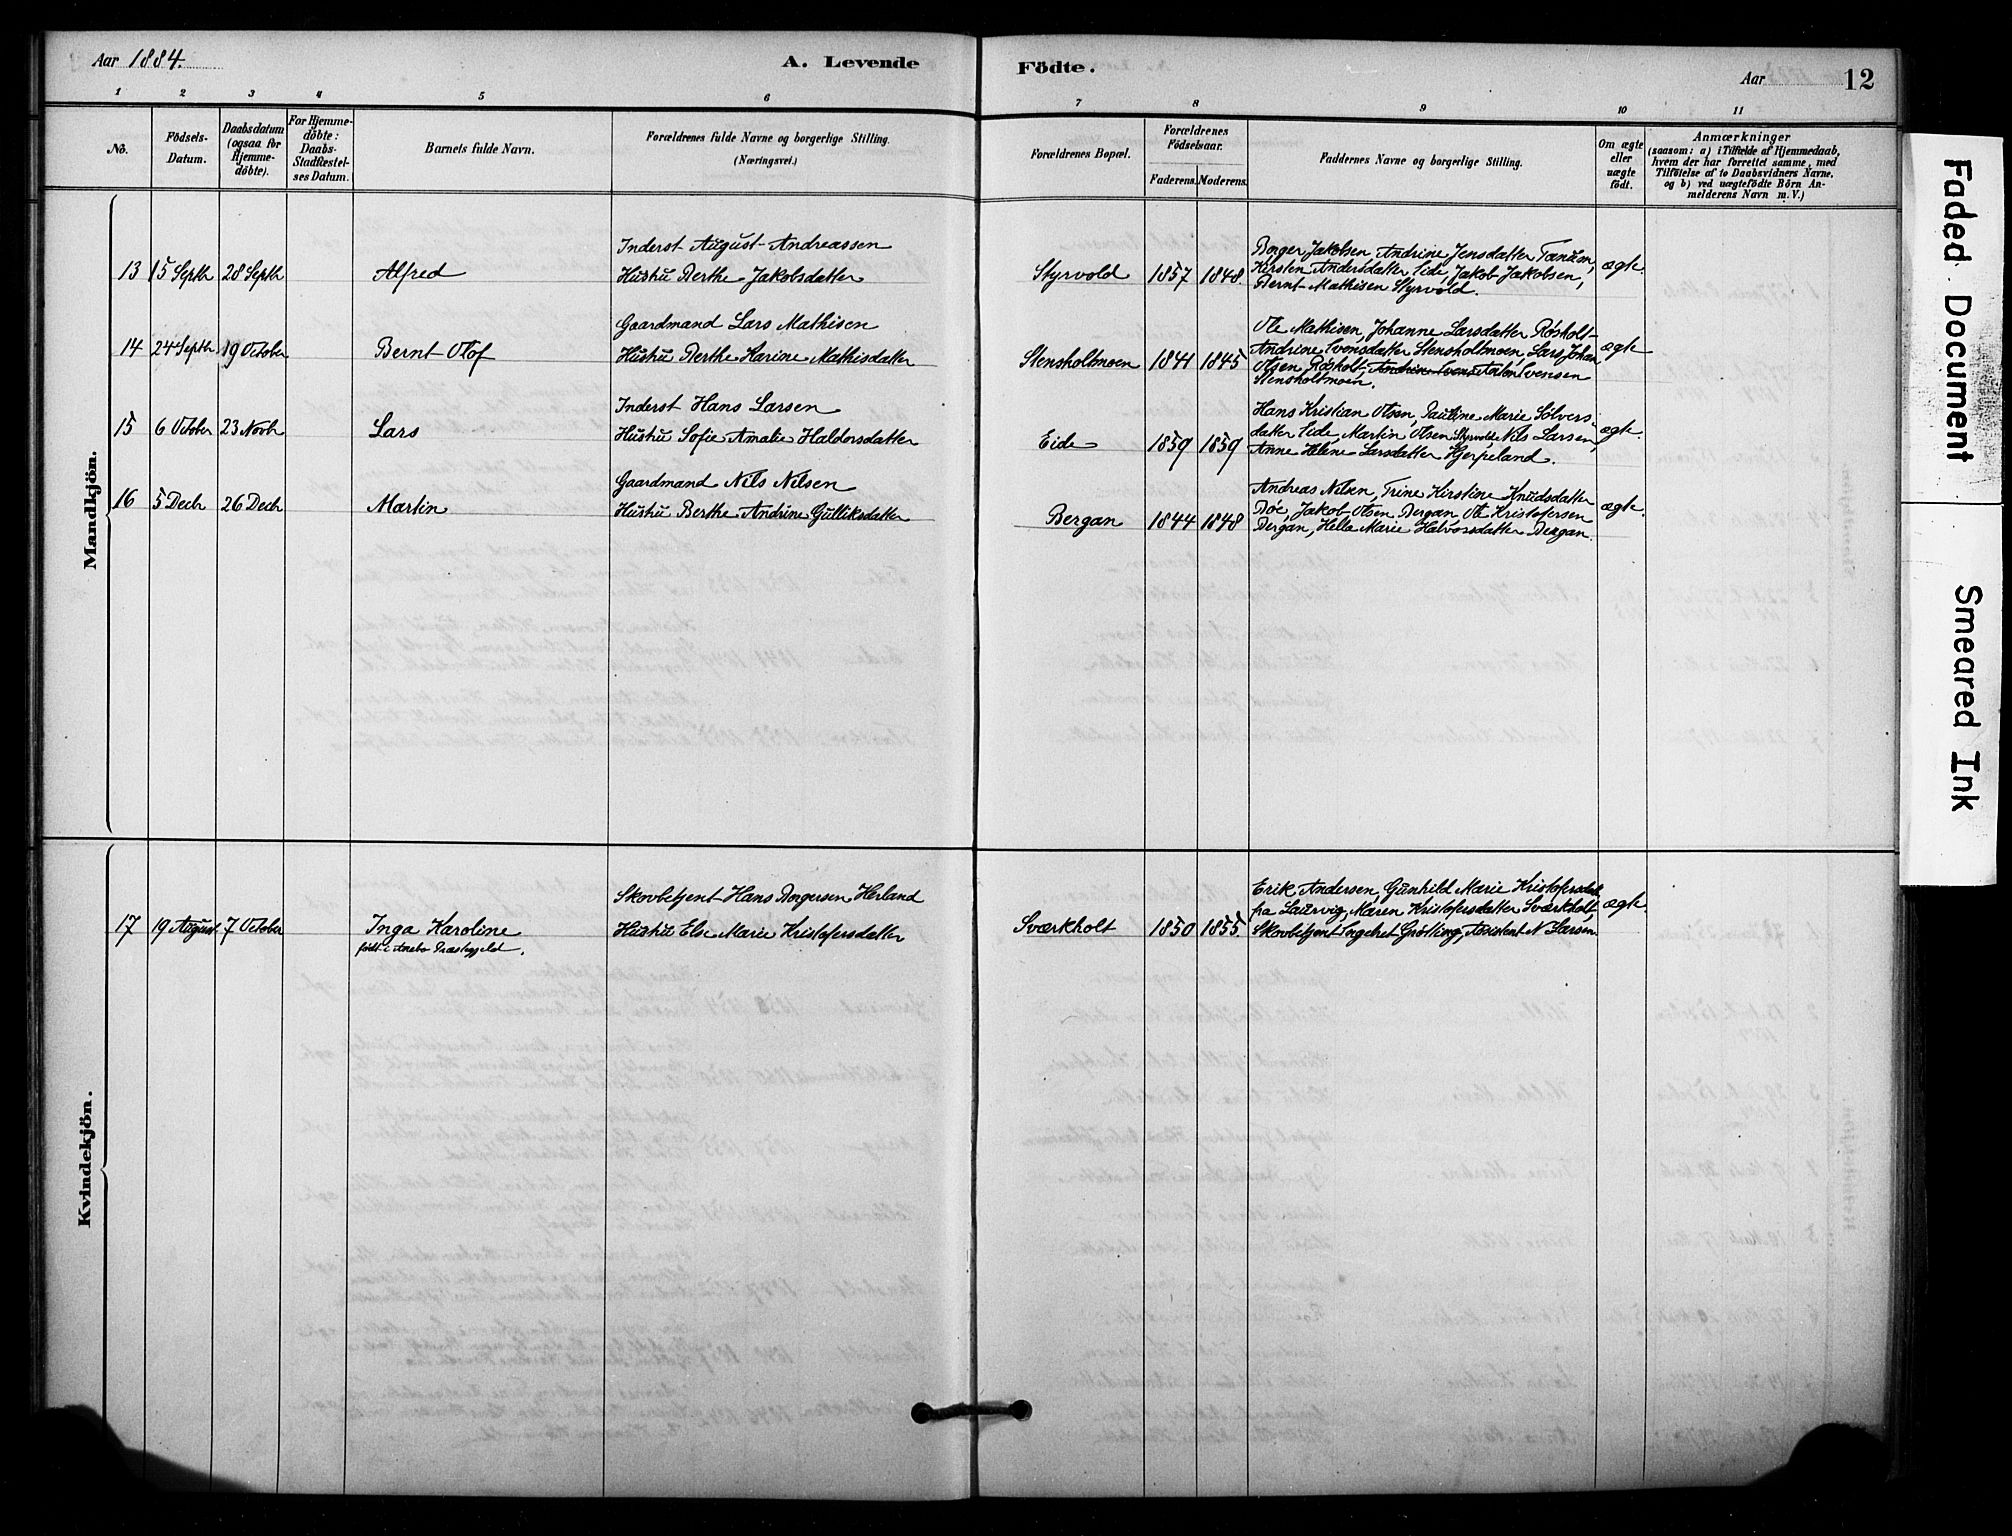 Aar 1884.
A. Levende
Födte.
Aar
12
1 2 3 4 5 6 7 8 9 10 11
No.
Födsels-
Datum.
Daabsdatum
(ogsaa for
Hjemme-
döbte).
For Hjemme-
döbte:
Daabs-
Stadfæstel-
ses Datum.
Barnets fulde Navn.
Forældrenes fulde Navne og borgerlige Stilling.
(Næringsvei.)
Forældrenes Bopæl.
Forældrenes
Födselsaar.
Faderens. Moderens.
Faddernes Navne og borgerlige Stilling.
Om ægte
eller
uægte
födt.
Anmærkninger
(saasom: a) i Tilfælde af Hjemmedaab,
hvem der har forrettet samme, med
Tilföielse af to Daabsvidners Navne,
og b) ved uægtefödte Börn An-
melderens Navn m. V.)
Mandkjön.
13 15 Septb 28 Septb Alfred
Inderst August Andreassen
Hustru Berthe Jakobsdatter
Styrvold 1857 1848.
Borger Jakobsen, Andrine Jensdatter Tanum,
Kirsten Andersdatter Eide, Jakob Jakobsen,
Bernt Mathisen Styrvold.
ægte.
14 24 Septb 19 October Bernt Olof
Gaardmand Lars Mathisen
Hustru Berthe Karine Mathisdatter
Stensholtmoen 1841 1845
Ole Mathisen, Johanne Larsdatter Røsholt
Andrine Evensdatter Stensholtmoen, Lars Johan
Olsen Røsholt, Evensen
Stensholtmoen.
ægte
15 6 October 23 Novb Lars
Inderst Hans Larsen
Hustru Sofie Amalie Haldorsdatter
Eide 1859 1859
Hans Kristian Olsen, Pauline Marie Sølvers
datter Eide, Martin Olsen Styrvold, Nils Larsen,
Anne Helene Larsdatter Hjerpeland.
ægte.
16 5 Decb 26 Decb Martin
Gaardmand Nils Nilsen
Hustru Berthe Andrine Gulliksdatter
Bergan 1844 1848
Andreas Nilsen, Trine Kirstine Knudsdatter
Bøe, Jakob Olsen Bergan, Ole Kristofersen
Bergan, Helle Marie Halvorsdatter Bergan.
ægte.
Kvindekjön.
17 19 August 7 October Inga Karoline
født i Anebo Præstegjeld.
Skovbetjent Hans Borgersen Herland
Hustru Else Marie Kristofersdatter
Sværkholt 1850 1855
Erik Andersen, Gunhild Marie Kristofersdatt
fra Laurvig, Maren Kristofersdatter Sværkholt,
Skovbetjent Ingebret Grøtting, Assistent N Larsen
ægte.
Faded Document
Smeared Ink